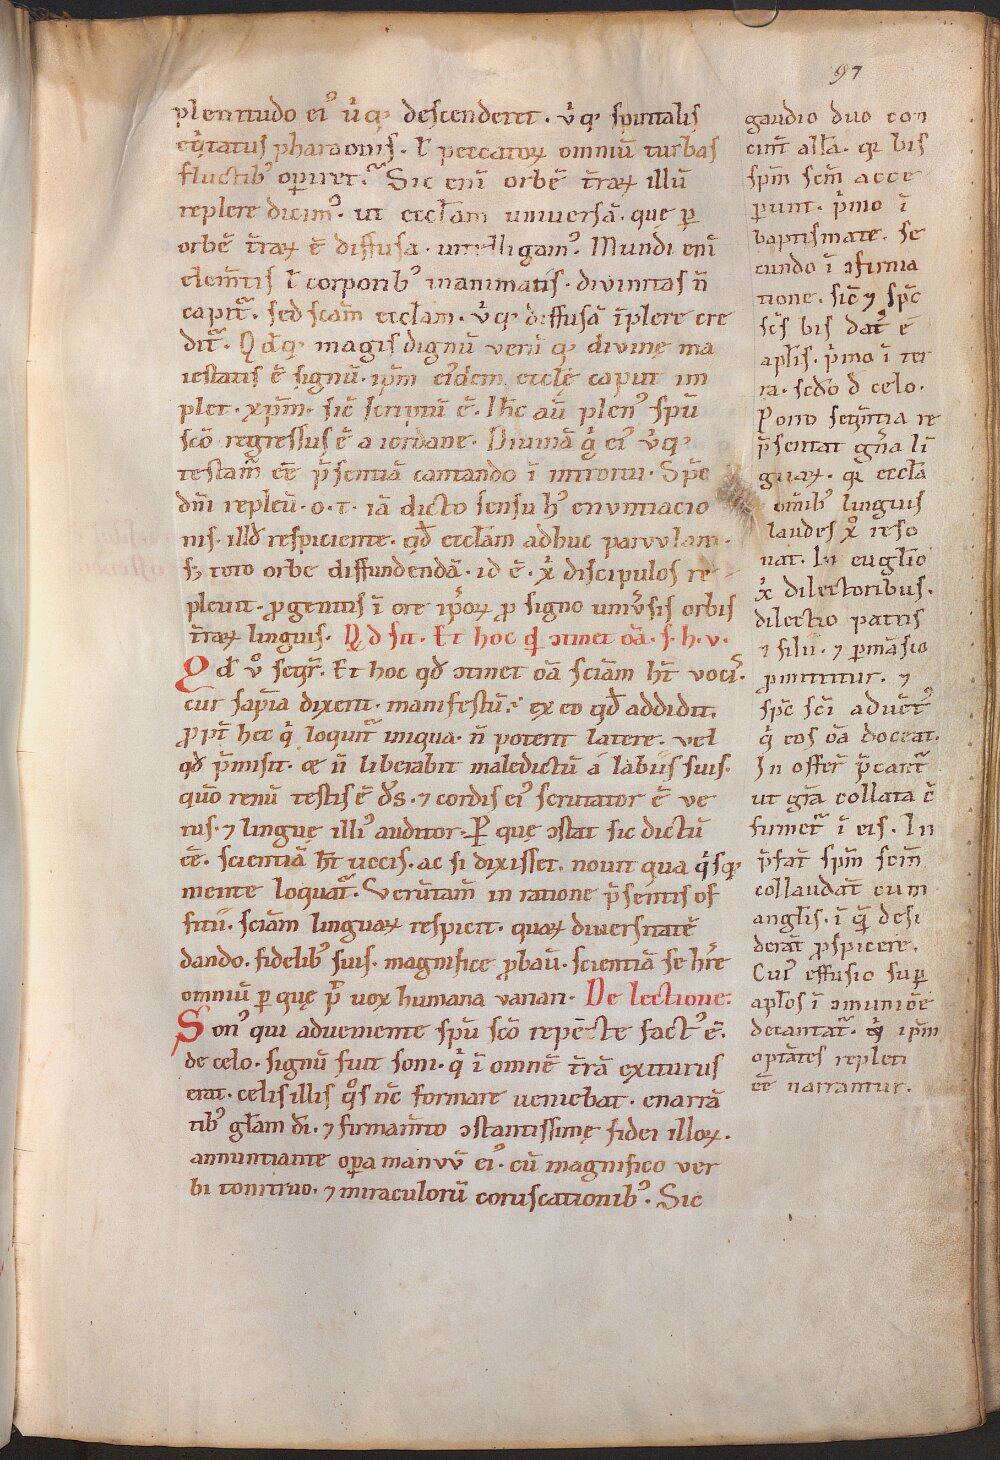 97
plenitudo ei᾽ ůq; descenderet · ůq; spiritalis
eq̇tatus pharaonis · ł peccatoꝝ omniū turbas
fluctib᾽ opiret᷑ · Sic eni orbē t̄raꝝ illū
replere dicim᾽ · ut ecclam universā · que p
orbē t̄raꝝ ē diffusa · intelligam᾽ · Mundi eni
elem̄tis ł corporib᾽ inanimatis · divinitas n̄
capit᷑ · sed scam ecclam · ůq; diffusā īplere cre
dit᷑ · Qdq; magis dignū verū q; divinę ma
iestatis ē signū · ipm ei᾽dem ecclę caput im
plet · xpm · sic̄ scriptū ē · Ihc aū plen᾽ spū
sco regressus ē a iordane · Divinā g ei᾽ ůq;
testam̄ ēē p̄sentiā cantando ī introitu · Spc
dni repleū · o · t · iā dicto sensu h᾽ enuntiacio
nis · illd respiciente · qd ecclam adhuc parvulam ·
sꝫ toto orbe diffundendā · id ē · x discipulos re
plevit · progenitis ī ore ipoꝝ p signo univsis orbis
t̄raꝝ linguis · Qd sit · Et hoc qd ↄtinet oā · s · h · v ·
Qd v° seqr̄ · Et hoc qd ↄtinet oā sciam ht voci᾽ ·
cur sapia dixerit · manifestū · ex eo qd addidit,
ppt hec q loqunt᷑ iniqua · n̄ poterit latere · vel
qd p̄misit · & n̄ liberabit maledictū a labiis suis ·
quō renū testis ē ds · ⁊ cordis ei᾽ scrutator ē ve
rus · ⁊ linguę illi᾽ auditor · P que ↄstat sic dictū
ēē · scientiā ht vocis · ac si dixisset · novit qua qsq;
mente loquat᷑ · Verūtam̄ in ratione p̄sentis of
fitii · sciam linguaꝝ respicit · quaꝝ diversitatē
dando · fidelib᾽ suis · magnifice pbaū · scientiā se hre
omniū p que p vox humana variari · De lectione:
Son᾽ qui adveniente spū sco repente fact᾽ ē ·
de celo · signū fuit soni · q ī omnē t̄rā exiturus
erat · celis illis qs nc̄ formare veniebat · enarrā
tib᾽ glam di · ⁊ firmam̄to ↄstantissimę fidei illoꝝ ·
annuntiante opa manuū ei᾽ · cū magnifico ver
bi tonitruo · ⁊ miraculorū coruscationib᾽ · Sic
gaudio duo con
cinit alla · qr bis
spm scm acce
perunt · p̄mo ī
baptismate · se
cundo ī ↄfirma
tione · sic̄ ⁊ spc
scs bis dat᷑ ē
aplis · p̄mo ī ter
ra · scdo d celo ·
Porro seqn̄tia re
p̄sentat gn̄a li
guaꝝ · qr eccla
omib᾽ linguis
laudes x° reso
nat · In euglio
x dilectoribus ·
dilectio patris
⁊ filii · ⁊ pmāsio
pmittitur · ⁊
spc sci advēt᾽
q eos oā doceat ·
In offer p̄cant᷑
ut gra collata ē
firmet᷑ ī eis · In
p̄fat spm scm̄
collaudat cum
anglis · ī q̄ desi
derat pspicere ·
Cui᾽ effusio sup
aplos ī ↄmuniōe
decantat᷑ · q ipm
optātes repleti
ēē narrantur ·